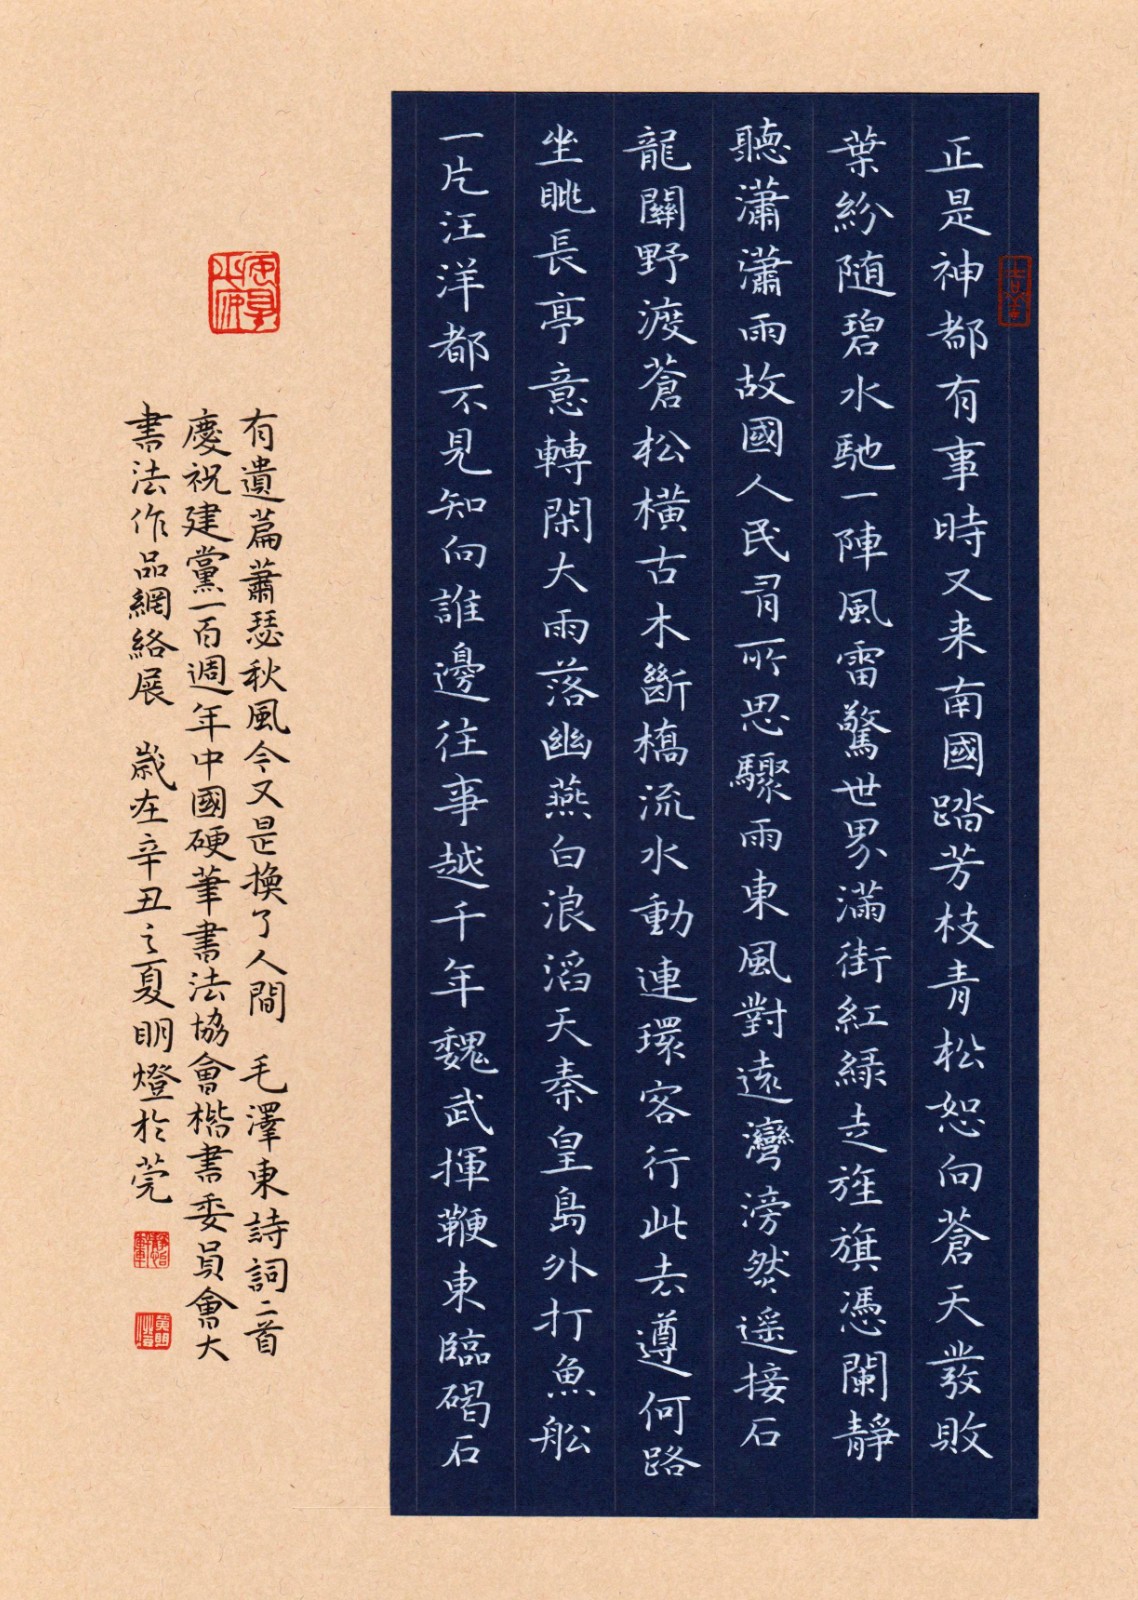 正是神都有事時又来南國踏芳枝青松恕向蒼天發敗
葉紛随碧水馳一陣風雷驚世界滿街紅綠走旌旗憑闌靜
聽瀟瀟雨故國人民有所思驟雨東風對遠灣滂然遥接石
龍關野渡蒼松橫古木斷橋流水動連環客行此去遵何路
坐眺長亭意轉閑大雨落幽燕白浪滔天秦皇島外打魚船
一片汪洋都不見知向誰邊往事越千年魏武揮鞭東臨碣石
有遺篇蕭瑟秋風今又是換了人間 毛澤東詩詞二首
慶祝建黨一百週年中國硬筆書法協會楷書委員會大
書法作品網絡展 歲在辛丑之夏明燈於莞